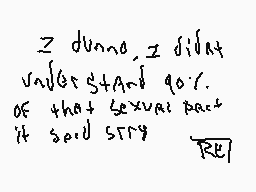 I dunno, I didnt
understand 90%.
of that sexual part
it said srry
RE